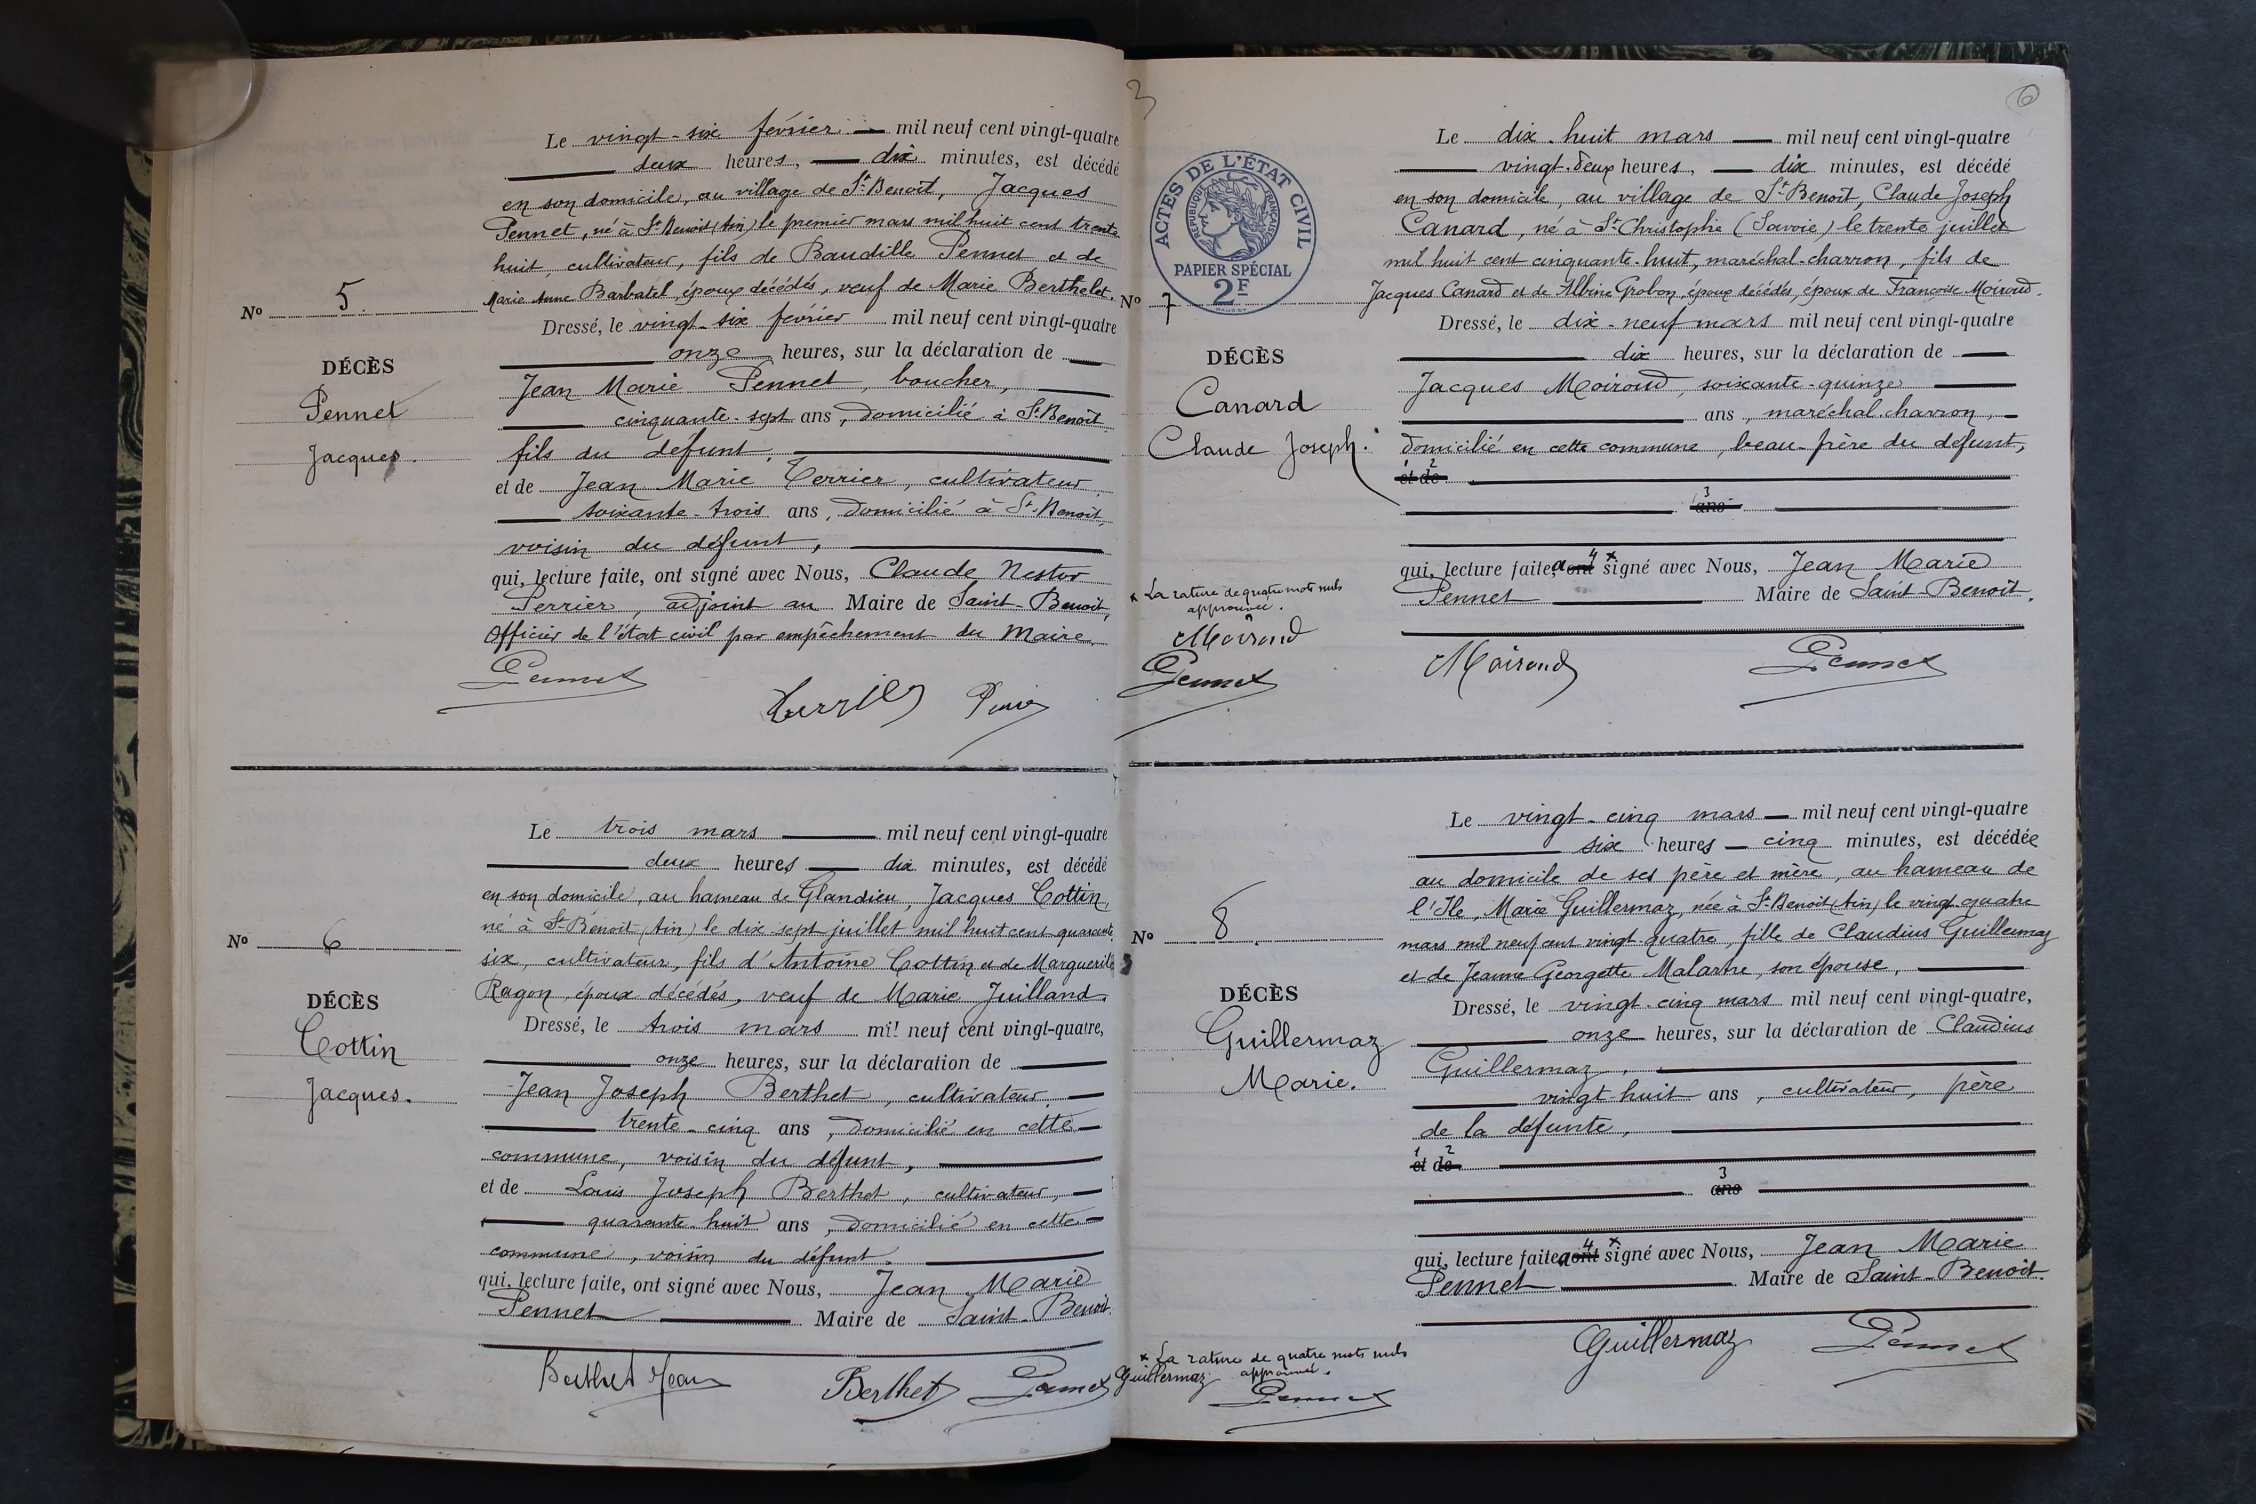 Le vingt-six février mil neuf cent vingt-quatre
deux heures, dix minutes, est décédé
en son domicile, au village de St Benoît, Jacques
Pennet, né à St Benoit (Ain) le premier mars mil huit cent trente
huit, cultivateur, fils de Baudille Pennet et de
Marie Anne Barbatel, époux décédés, veuf de Marie Berthelet.
No 5.
Dressé, le vingt-six février mil neuf cent vingt-quatre
onze heures, sur la déclaration de
DÉCÈS
Pennet
Jacques.
Jean Marie Pennet, boucher,
cinquante-sept ans, domicilié à St Benoît
fils du défunt,
et de Jean Marie Terrier, cultivateur,
soixante-trois ans, domicilié à St Benoit,
voisin du défunt,
qui, lecture faite, ont signé avec Nous, Claude Nestor
Perrier, adjoint au Maire de Saint-Benoit,
Officier de l'état civil par empêchement du Maire.
Pennet
Terrier
Le trois mars mil neuf cent vingt-quatre
deux heures dix minutes, est décédé
en son domicile, au hameau de Glandieu, Jacques Cottin,
né à St Benoit (Ain) le dix-sept juillet mil huit cent quarante
six, cultivateur, fils d'Antoine Cottin et de Marguerite
Ragon, époux décédés, veuf de Marie Juilland.
No 6
Dressé, le trois mars mil neuf cent vingt-quatre,
onze heures, sur la déclaration de
DÉCÈS
Cottin
Jacques.
Jean Joseph Berthet, cultivateur,
trente-cinq ans, domicilié en cette
commune, voisin du défunt,
et de Louis Joseph Berthet, cultivateur,
quarante-huit ans, domicilié en cette
commune, voisin du défunt.
qui, lecture faite, ont signé avec Nous, Jean Marie
Pennet Maire de Saint-Benoit.
Berthet Jean
Berthet Pennet
3
6
ACTES DE L'ÉTAT CIVIL
RÉPUBLIQUE FRANÇAISE
PAPIER SPÉCIAL
2F
Le dix-huit mars mil neuf cent vingt-quatre
vingt-deux heures, dix minutes, est décédé
en son domicile, au village de St Benoît, Claude Joseph
Canard, né à St Christophe (Savoie) le trente juillet
mil huit cent cinquante-huit, maréchal-charron, fils de
Jacques Canard et de Albine Grobon, époux décédés, époux de Françoise Moiroud.
No 7
Dressé, le dix-neuf mars mil neuf cent vingt-quatre
dix heures, sur la déclaration de
DÉCÈS
Canard
Claude Joseph.
Jacques Moiroud, soixante-quinze
ans, maréchal-charron,
domicilié en cette commune, beau-frère du défunt,
1 2
et de
3
ans
4 x
qui, lecture faite, a ont signé avec Nous, Jean Marie
Pennet Maire de Saint-Benoît.
x La rature de quatre mots nuls
approuvée.
Moiroud
Pennet
Moiroud
Pennet
Le vingt-cinq mars mil neuf cent vingt-quatre
six heures cinq minutes, est décédée
au domicile de ses père et mère, au hameau de
l'Ile, Marie Guillermaz, née à St Benoit (Ain) le vingt-quatre
mars mil neuf cent vingt-quatre, fille de Claudius Guillermaz
et de Jeanne Georgette Malartre, son épouse,
No 8.
Dressé, le vingt-cinq mars mil neuf cent vingt-quatre,
onze heures, sur la déclaration de Claudius
DÉCÈS
Guillermaz
Marie.
Guillermaz,
vingt-huit ans, cultivateur, père
de la défunte,
1 2
et de
3
ans
4 x
qui, lecture faite a ont signé avec Nous, Jean Marie
Pennet Maire de Saint-Benoît.
Guillermaz Pennet
x La rature de quatre mots nuls
Guillermaz approuvée.
Pennet